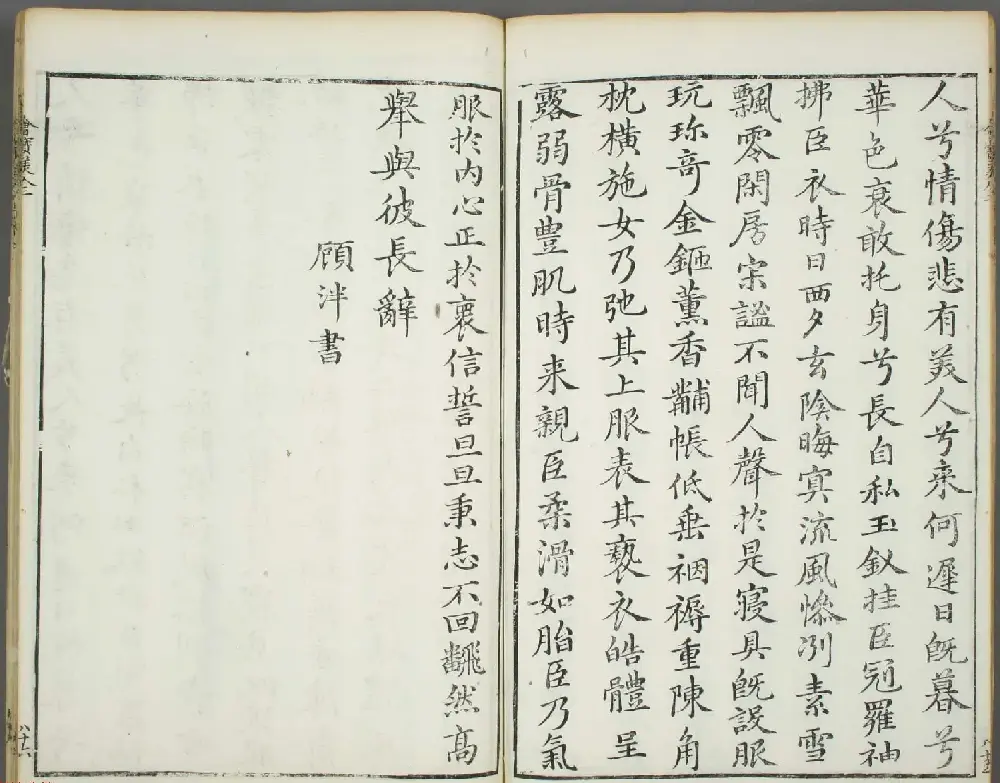 人兮情傷悲有美人兮来何遲日旣暮兮
華色衰敢托身兮長自私玉釵挂臣冠羅袖
拂臣衣時日西夕玄陰晦㝠流風慘冽素雪
飄零閑房宗謐不聞人聲於是寝具旣設服
玩珎奇金鉔薰香黼帳低垂裀褥重陳角
枕横施女乃弛其上服表其褻衣皓體呈
露弱骨豊肌時来親臣柔滑如脂臣乃氣
服於内心正於褱信誓旦旦秉志不回飜然高
舉與彼長辭
顧泮書